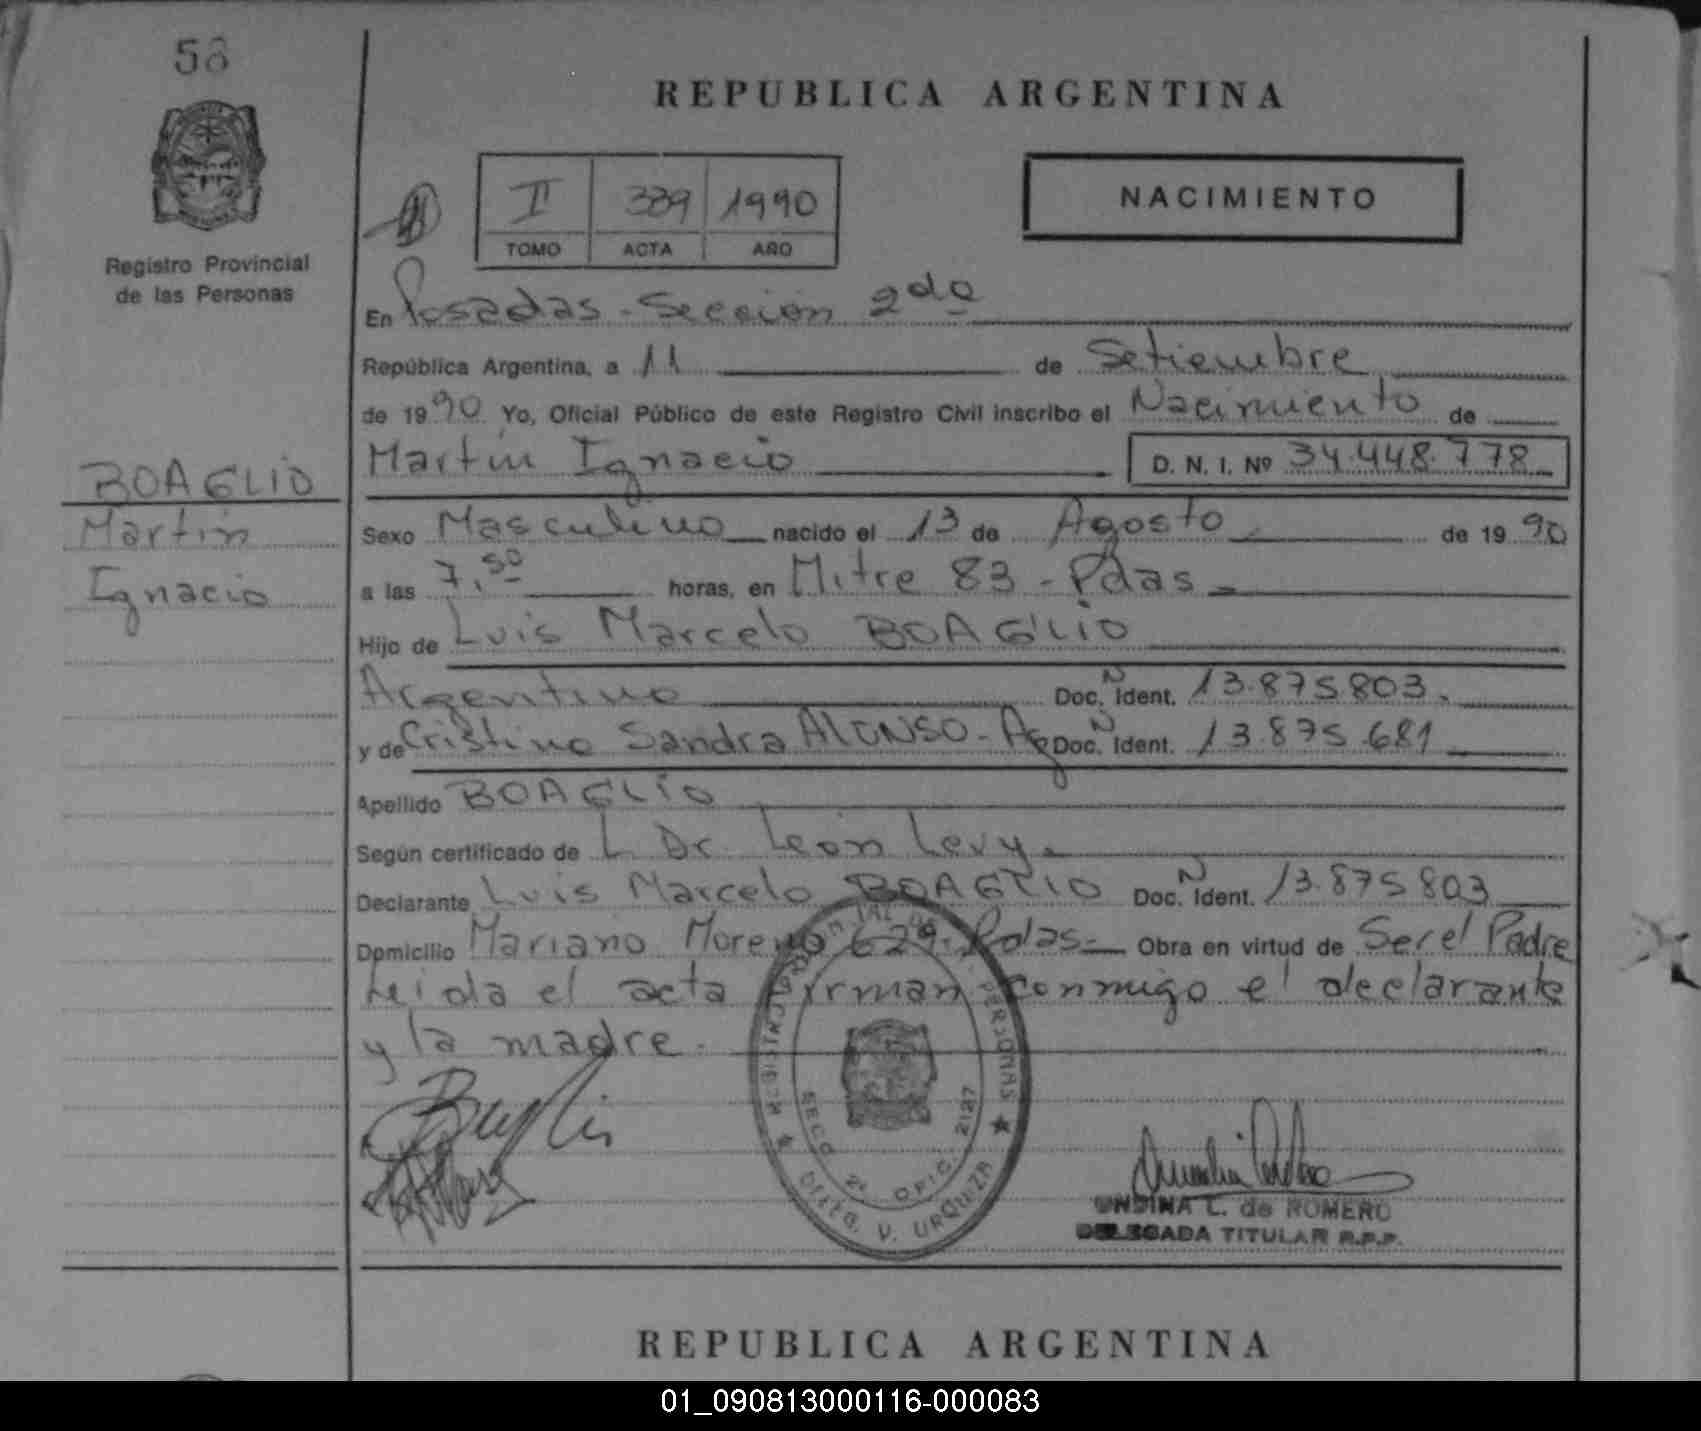 58
REPUBLICA ARGENTINA
II 389 1990
TOMO ACTA AÑO
NACIMIENTO
Registro Provincial
de las Personas
En Posadas - Sección 2da
República Argentina, a 11 de Setiembre
de 1990 Yo, Oficial Público de este Registro Civil inscribo el Nacimiento de
Martín Ignacio D. N. I. Nº 34.448.778
BOAGLIO
Martín
Ignacio
Sexo Masculino nacido el 13 de Agosto de 1990
a las 7,50 horas, en Mitre 83 - Pdas -
Hijo de Luis Marcelo BOAGLIO
Argentino Doc. N Ident. 13.875.803.
y de Cristina Sandra ALONSO - Ag Doc. N Ident. 13.875.681
Apellido BOAGLIO
Según certificado de L. Dr. León Levy.
Declarante Luis Marcelo BOAGLIO Doc. N Ident. 13.875803
Domicilio Mariano Moreno 629. Pdas - Obra en virtud de Ser el Padre
Leida el acta firman conmigo el declarante
y la madre.
REGISTRO PROVINCIAL DE LAS PERSONAS
SECC. 2ª OFIC. 2127
DELEG. V. URQUIZA
UNDINA L. de ROMERO
DELEGADA TITULAR R.P.P.
REPUBLICA ARGENTINA
01_090813000116-000083